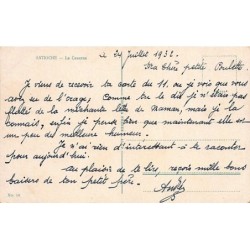 ANTIOCHE - Le Casino
le 24 Juillet 1932.
Ma chère petite Paulette.
Je viens de recevoir ta carte du 11. où je vois que vous
avez eu de l'orage. Comme tu le dis je n'étais pas
flatté de la méchante tête de Maman, mais je la
connais, enfin je pense bien que maintenant elle est
un peu de meilleure humeur.
Je n'ai rien d'intéressant à te raconter
pour aujourd'hui.
au plaisir de te lire, reçois mille bons
baisers de ton petit père.